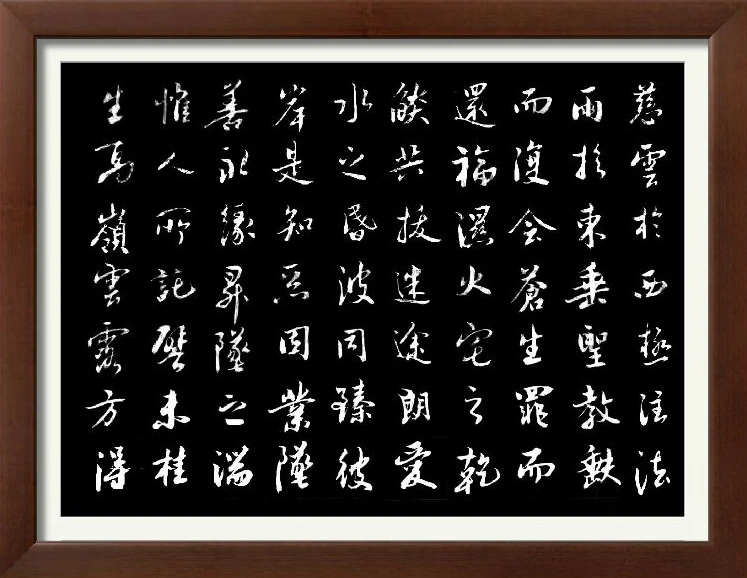 慈雲於西極注法
雨於東垂聖教缺
而復全蒼生罪而
還福濕火宅之乾
焰共拔迷途朗愛
水之昏波同臻彼
岸是知惡因業墜
善以緣昇墜之端
惟人所託譬夫桂
生高嶺雲露方得